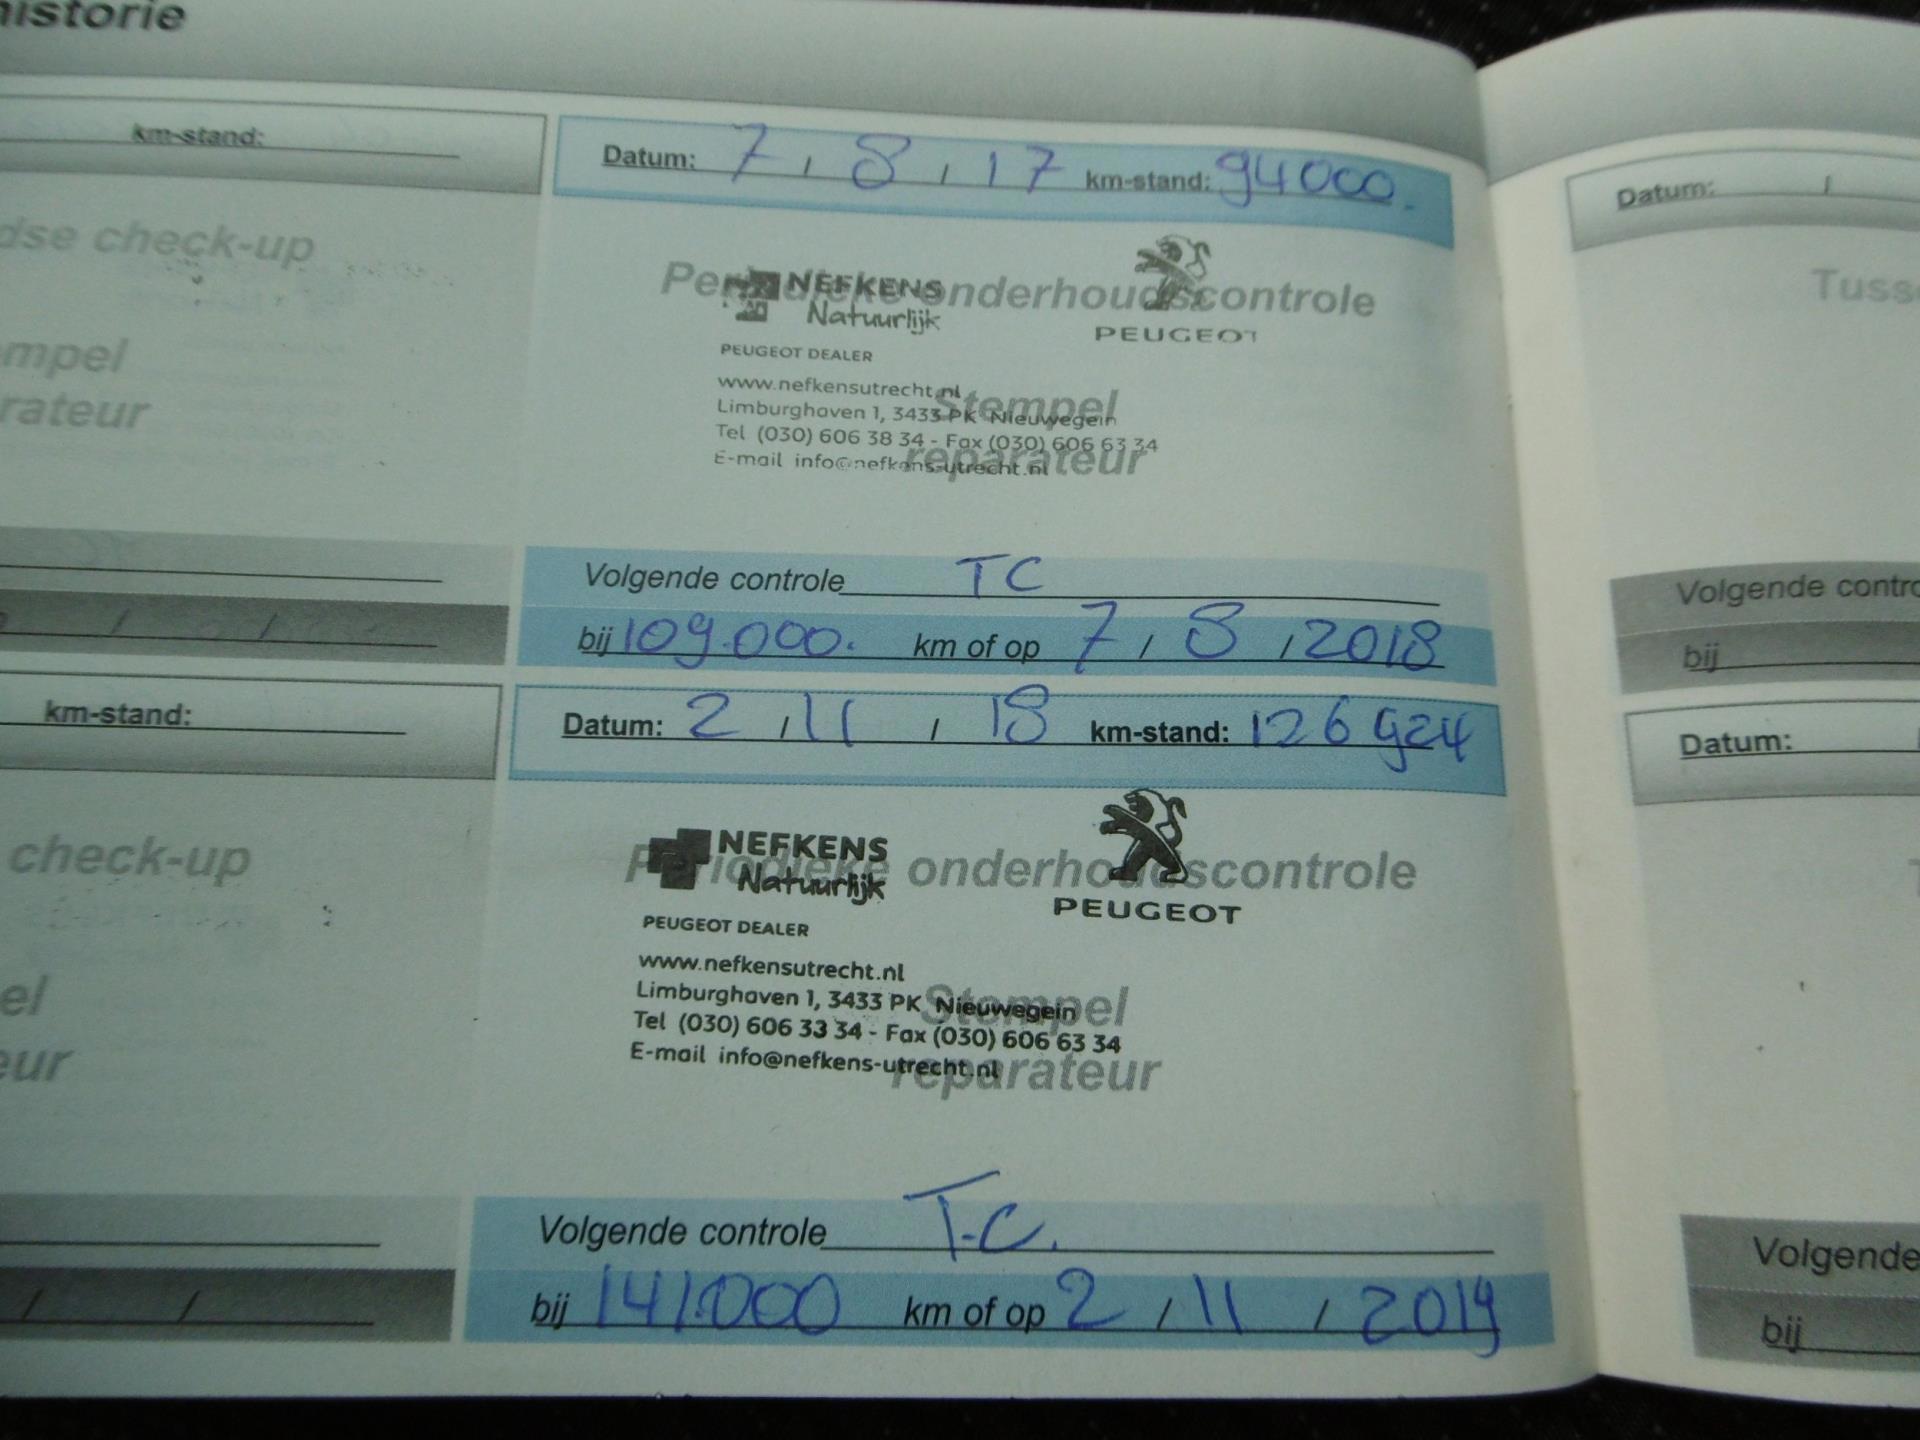 historie
km-stand:
dse check-up
mpel
rateur
km-stand:
check-up
el
eur
Datum: 7 / 8 / 17 km-stand: 94000.
Periodieke onderhoudscontrole
NEFKENS
Natuurlijk
PEUGEOT
PEUGEOT DEALER
www.nefkensutrecht.nl
Stempel
Limburghaven 1, 3433 PK Nieuwegein
Tel (030) 606 38 34 - Fax (030) 606 63 34
reparateur
E-mail info@nefkens-utrecht.nl
Volgende controle TC
bij 109.000. km of op 7 / 8 / 2018
Datum: 2 / 11 / 18 km-stand: 126924
NEFKENS
Periodieke onderhoudscontrole
Natuurlijk
PEUGEOT
PEUGEOT DEALER
www.nefkensutrecht.nl
Stempel
Limburghaven 1, 3433 PK Nieuwegein
Tel (030) 606 33 34 - Fax (030) 606 63 34
E-mail info@nefkens-utrecht.nl
reparateur
Volgende controle T.C.
bij 141.000 km of op 2 / 11 / 2019
Datum: /
Tuss
Volgende contro
bij
Datum:
T
Volgende
bij